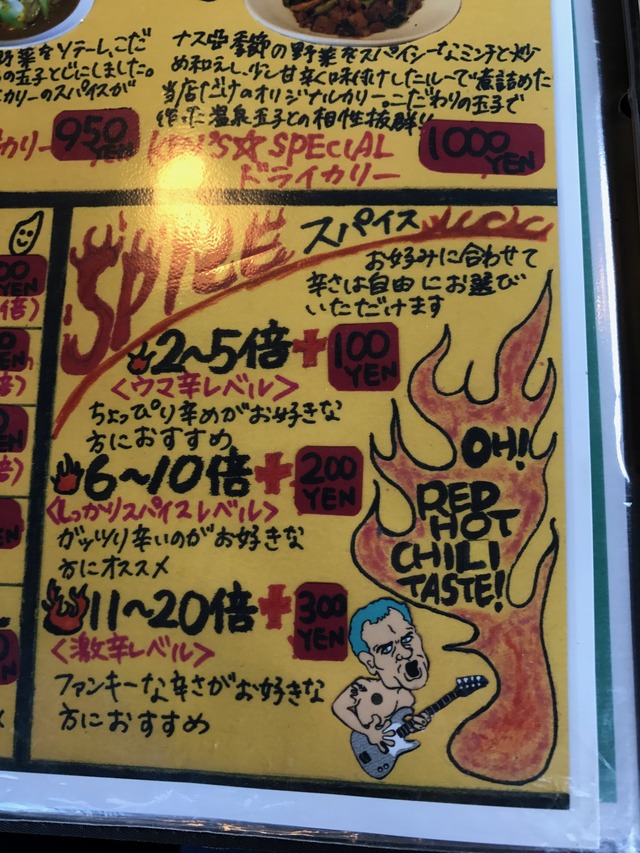 野菜をソテーし、こだ
の玉子とじにしました。
カリーのスパイスが
カリー 950 YEN
ナスや季節の野菜をスパイシーなミンチと炒
め和えし、少し甘辛く味付けしたルーで煮詰めた
当店だけのオリジナルカリー。こだわりの玉子で
作った温泉玉子との相性抜群!!
SPECIAL
ドライカリー
1000 YEN
SPICE スパイス
お好みに合わせて
辛さは自由にお選び
いただけます
2〜5倍+100 YEN
<ウマ辛レベル>
ちょっぴり辛めがお好きな
方におすすめ
6〜10倍+200 YEN
<しっかりスパイスレベル>
ガッツリ辛いのがお好きな
方にオススメ
11〜20倍+300 YEN
<激辛レベル>
ファンキーな辛さがお好きな
方におすすめ
OH!
RED
HOT
CHILI
TASTE!